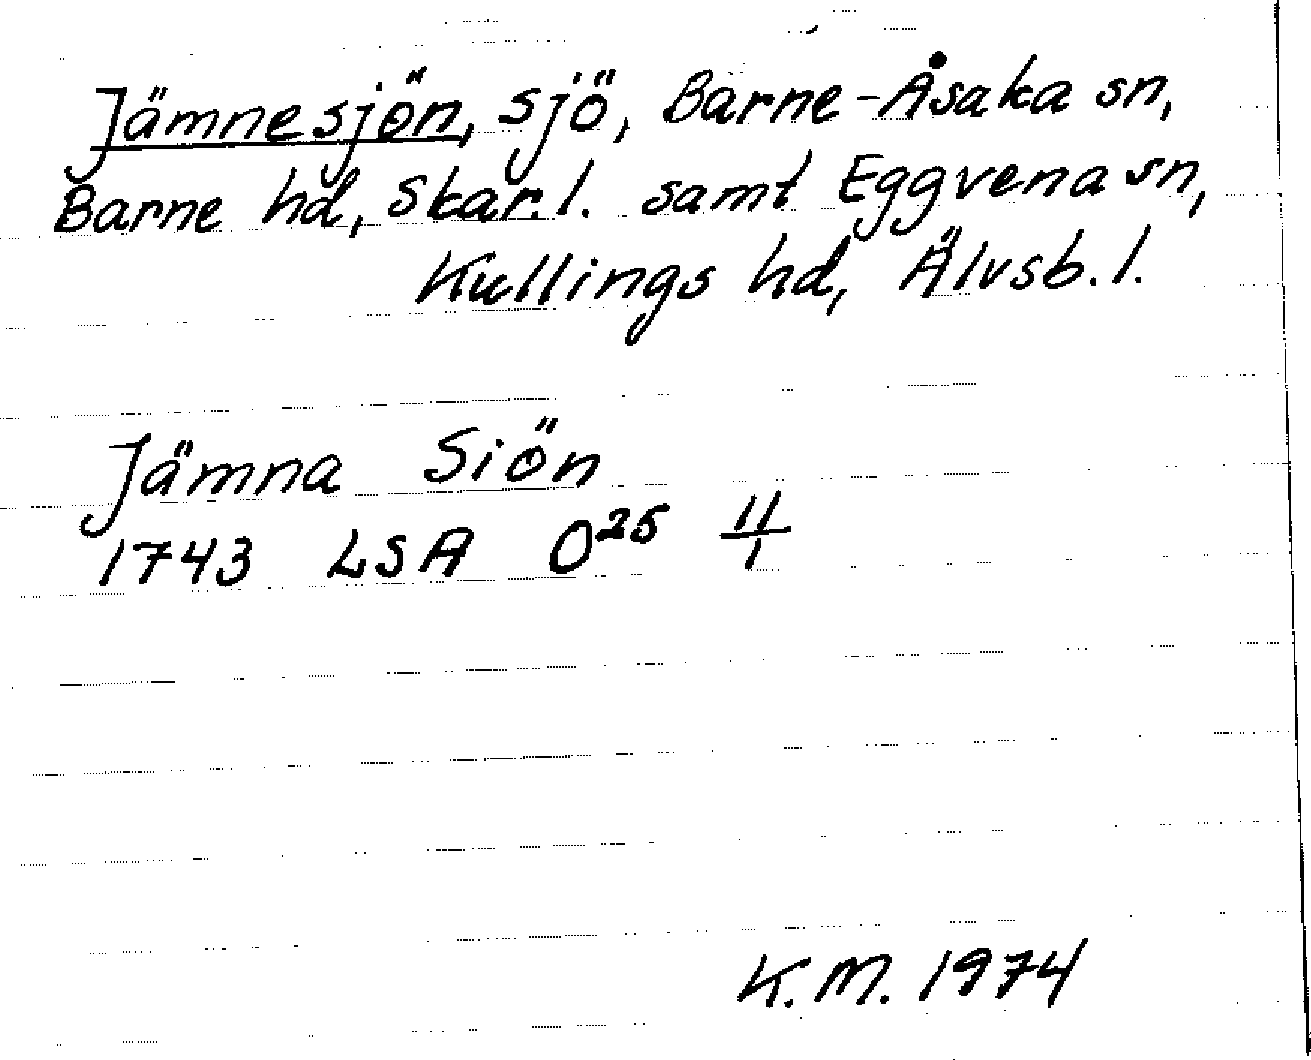 Jämnesjön, sjö, Barne-Åsaka sn,
Barne hd, Skar.l. samt Eggvena sn,
Kullings hd, Älvsb.l.
Jämna Siön
1743 LSA O²⁵ 11/1
K.M. 1974